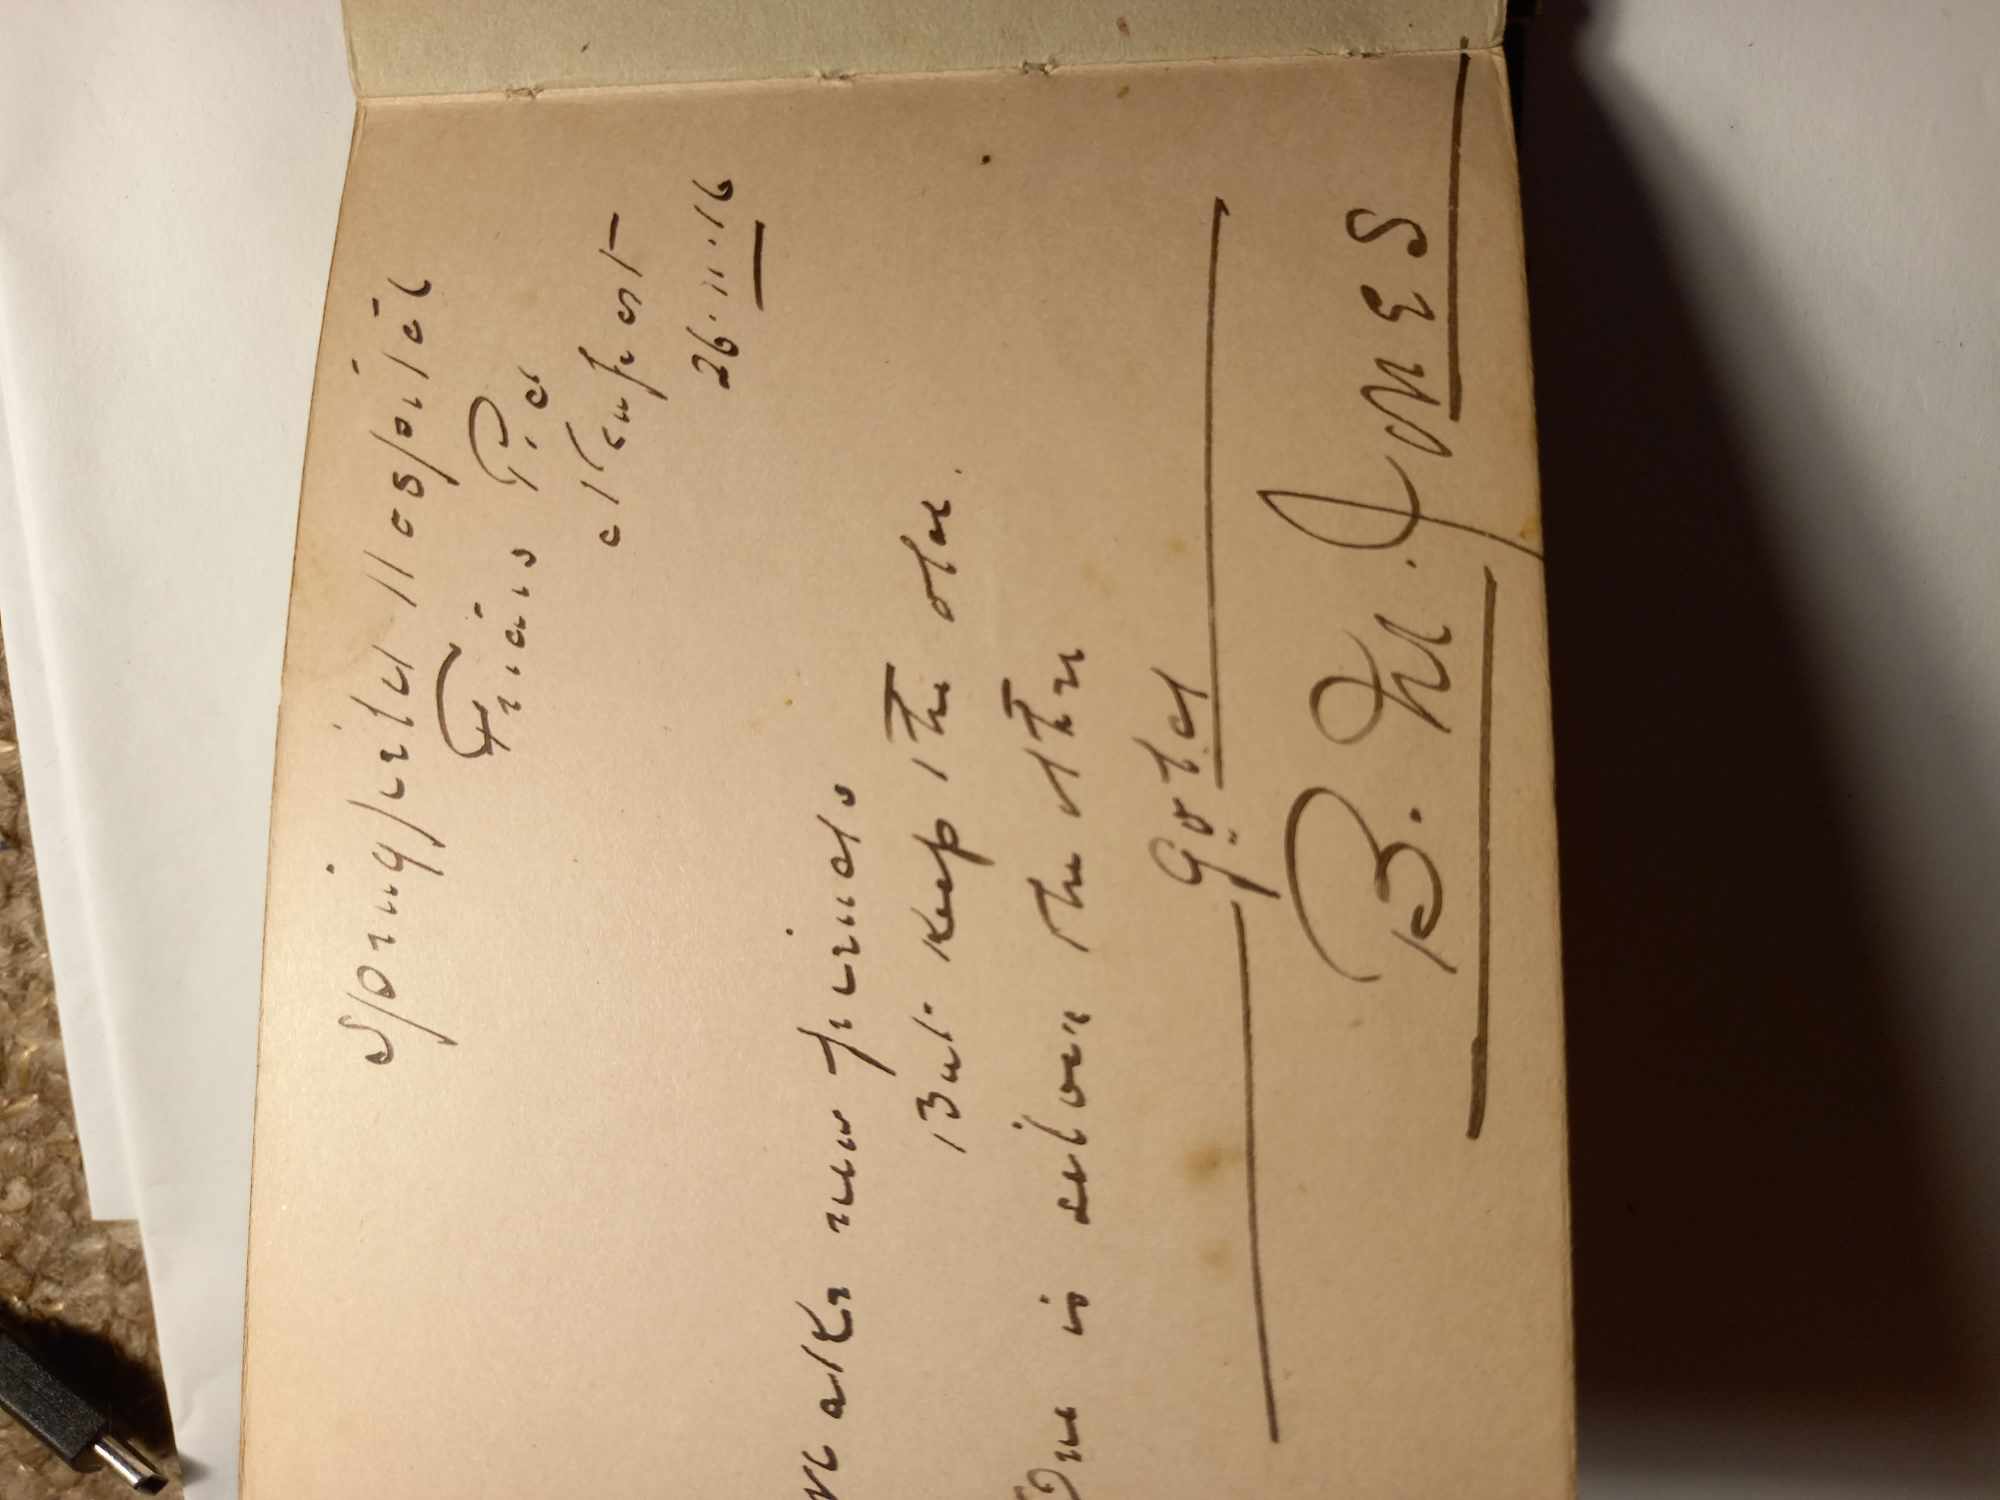 Springfield Hospital
Friars Rd
Newport
26.11.16
make new friends
But keep the old.
One is silver the other
gold
B. M. Jones